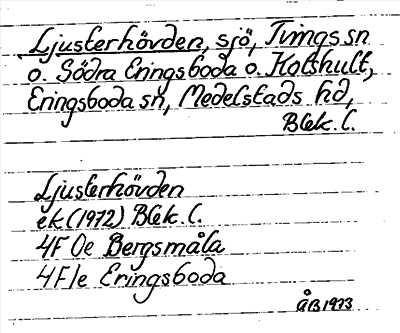 Ljusterhövden, sjö, Tvings sn
o. Södra Eringsboda o. Kolshult,
Eringsboda sn, Medelstads hd,
Blek. l.
Ljusterhövden
ek (1972) Blek. l.
4F 0e Bergsmåla
4F 1e Eringsboda
ÅB 1973